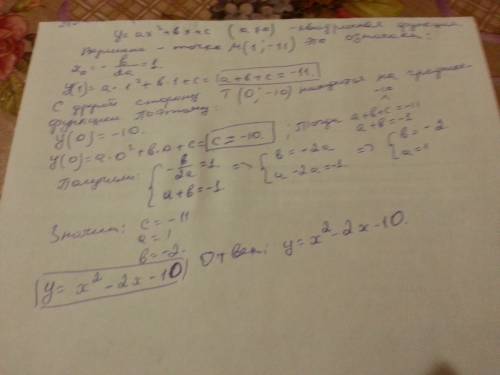 y = ax² + bx + c (a≠0) - квадратичная функция
Вершина - точка M(1; -11) Это означает:
x₀ = -b/2a = 1.
y(1) = a·1² + b·1 + c = a+b+c = -11.
С другой стороны T(0; -10) находится на графике
функции поэтому:
y(0) = -10.
y(0) = a·0² + b·0 + c = c = -10. ; Тогда a+b+c = -11
-10
a+b = -1
Получим: { -b/2a = 1 => { b = -2a => { b = -2
a+b = -1 a - 2a = -1 a = 1
Значит: c = -11
a = 1
b = -2.
y = x² - 2x - 10 Ответ: y = x² - 2x - 10.